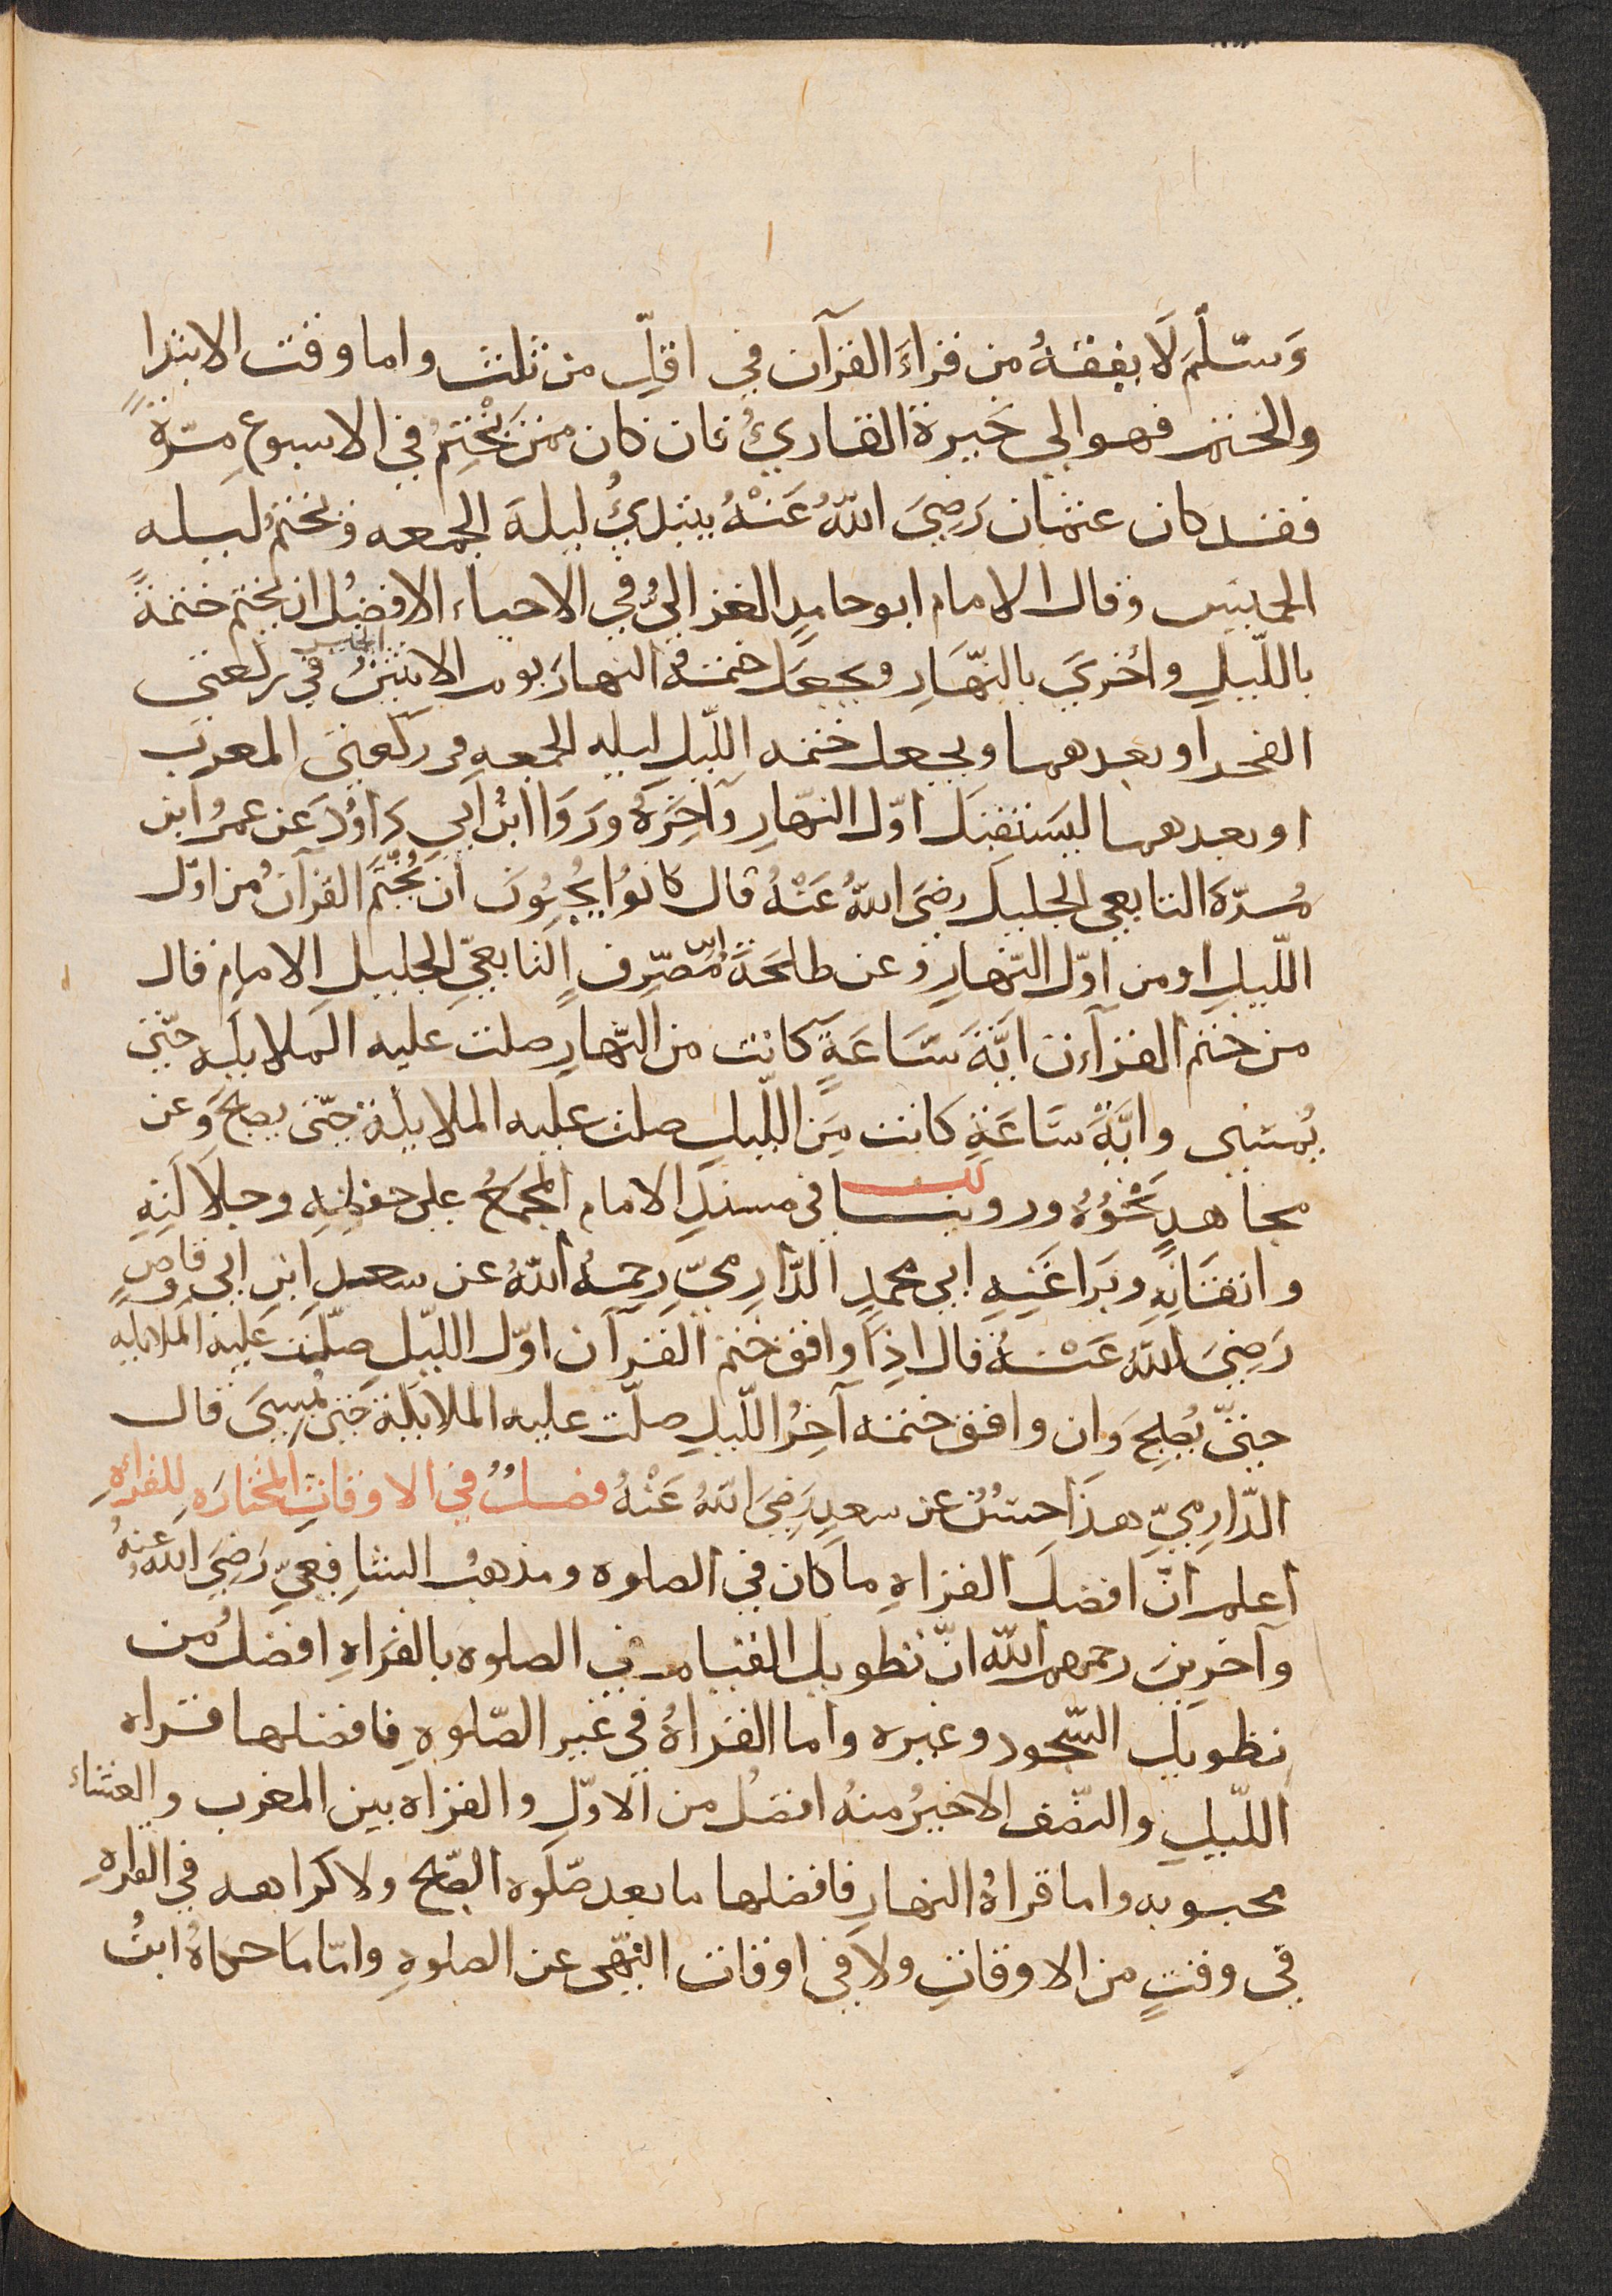 وَسَلَّمَ لَا يفقهُ من قراءَ القرآن في اقلِّ من ثلث واما وقت الابتدا
والختم فهو الي خيرة القاريُ فان كان ممن يَخْتِمُ في الاسبوع مرّةً
فقد كان عثمان رَضِيَ اللّهُ عَنْهُ يبتديُ ليلةَ الجمعه ويختمُ ليله
الخميس وقال الامام ابو حامدٍ الغزاليُّ في الاحياء الافضلُ ان يختم ختمةً
باللّيلِ وأخريَ بالنّهَارِ ويجعَل ختمة النهار يوم الاثنين في ركعتي
الفجر او بعدهما ويجعل ختمه اللّيل ليله الجمعه في ركعتي المغرب
او بعدهما ليستقبَل اوّل النّهارِ وآخِرَهُ وَرَوَا ابنُ ابي دَاوُدَ عَن عمرُ ابن
مُرّة التابعي الجليل رضيَ اللّهُ عَنْهُ قال كانُوا يُحِبُونَ ان يُخْتَمَ القرآن من اوّل
اللّيلِ او من اوّل النّهارِ وعن طلحَةَ ابن مُصَرِّفٍ التابعيِّ الجليل الامام قال
من ختم القرآن ايَّةَ سَاعَةٍ كانت من النّهارِ صلت عليه الملايكه حتّى
يُمسي وايَّةَ سَاعَةٍ كانت مِن اللّيلِ صلت عليه الملايكة حتّى يصبحَ وعن
مجاهدٍ نَحْوُهُ وروينا في مسندِ الامام المجمعُ على حفظِهِ وجلالَتِهِ
واتقَانِهِ وبَرَاعَتِهِ ابي محمدٍ الدّارِميِّ رحمهُ اللّهُ عن سعد ابن ابي وقاصٍ
رَضِيَ اللّهُ عَنْهُ قال اذَا وافق ختم القرآن اوّل اللّيل صلّت عليه الملايكه
حتىّ يُصْبِحَ وَان وافق ختمه آخِرُ اللّيلِ صلّت عليه الملايكة حتى يُمسِيَ قال
الدّارِميِّ هذَا حسَنٌ عن سعدٍ رَضِيَ اللّهُ عَنْهُ فصلٌ في الاوقاتِ المختارَه للقراةِ
اعلم انّ افضلَ القراةِ ما كان في الصلوه ومذهبُ الشافِعيّ رَضِيَ اللّهُ عنهُ
وآخرِينَ رحمهم اللّه انّ تطويل القيام في الصلوه بالقراةِ افضلُ من
تطويل السّجود وغيره واما القراةُ في غير الصّلوةِ فافضلها قراة
اللّيلِ والنّصف الاخيرُ منهُ افضلُ من الاوّلِ والقراة بين المغرب والعشاء
محبوبه واما قراةُ النهارِ فافضلها ما بعد صّلوة الصّبح ولا كراهه في القراةِ
في وقتٍ من الاوقاتِ ولا في اوقات النّهي عن الصلوةِ وامّا ما حكاهُ ابنُ